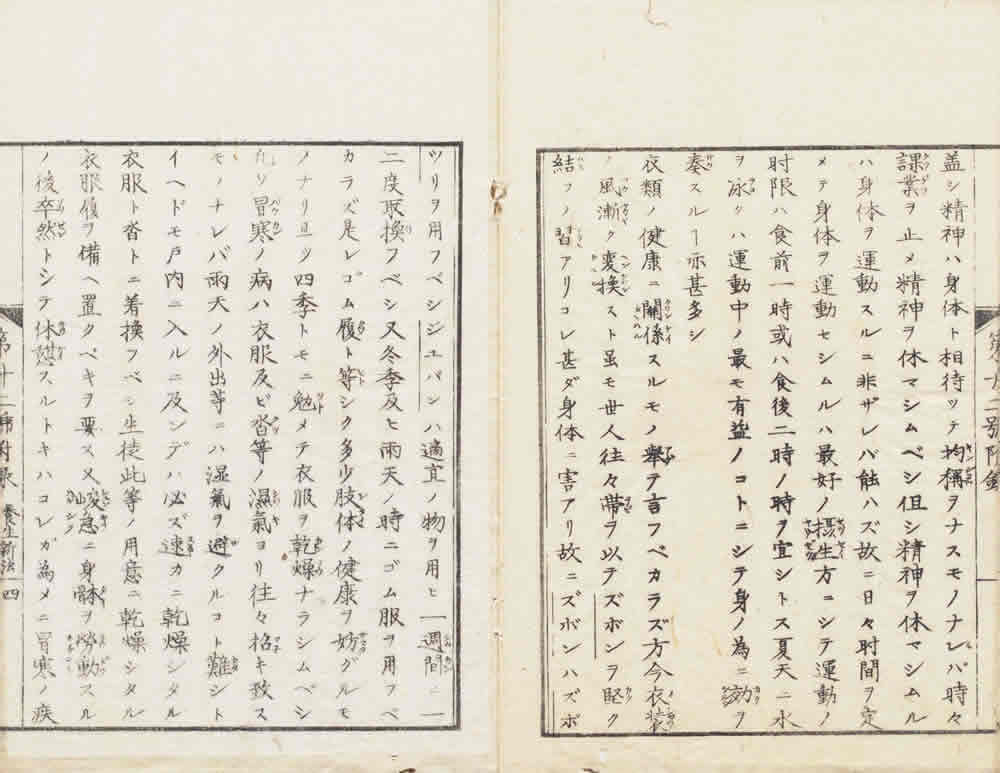 盖シ精神ハ身体ト相待ツテ均稱ヲナスモノナレバ時々
課業ヲ止メ精神ヲ休マシムベシ但シ精神ヲ休マシムル
ハ身体ヲ運動スルニ非ザレバ能ハズ故ニ日々时間ヲ定
メテ身体ヲ運動セシムルハ最好ノ摂生方ニシテ運動ノ
时限ハ食前一時或ハ食後二時ノ時ヲ宜シトス夏天ニ水
ヲ泳クハ運動中ノ最モ有益ノコトニシテ身ノ為ニ効ヲ
奏スルヿ亦甚多シ
衣類ノ健康ニ關係スルモノ舉テ言フベカラズ方今衣裝
ノ風漸ク変換スト虽モ世人往々帶ヲ以テズボンヲ堅ク
結フノ習アリコレ甚ダ身体ニ害アリ故ニズボンハズボ
ツリヲ用フベシジユバンハ適宜ノ物ヲ用ヒ一週間ニ一
二度取換フベシ又冬季及ヒ雨天ノ時ニゴム服ヲ用フベ
カラズ是レゴム履ト等シク多少肢体ノ健康ヲ妨グルモ
ノナリ且ツ四季トモニ勉メテ衣服ヲ乾燥ナラシムベシ
凡ソ冒寒ノ病ハ衣服及ビ沓等ノ濕氣ヨリ往々招キ致ス
モノナレバ雨天ノ外出等ニハ湿氣ヲ避クルコト難シト
イヘドモ戸内ニ入ルニ及ンデハ必ズ速カニ乾燥シタル
衣服ト沓トニ着換フベシ生徒此等ノ用意ニ乾燥シタル
衣服履ヲ備ヘ置クベキヲ要ス又峻急ニ身体ヲ勞動スル
ノ後卒然トシテ休憩スルトキハコレガ為メニ冒寒ノ疾
第十二號附录 養生新法 四